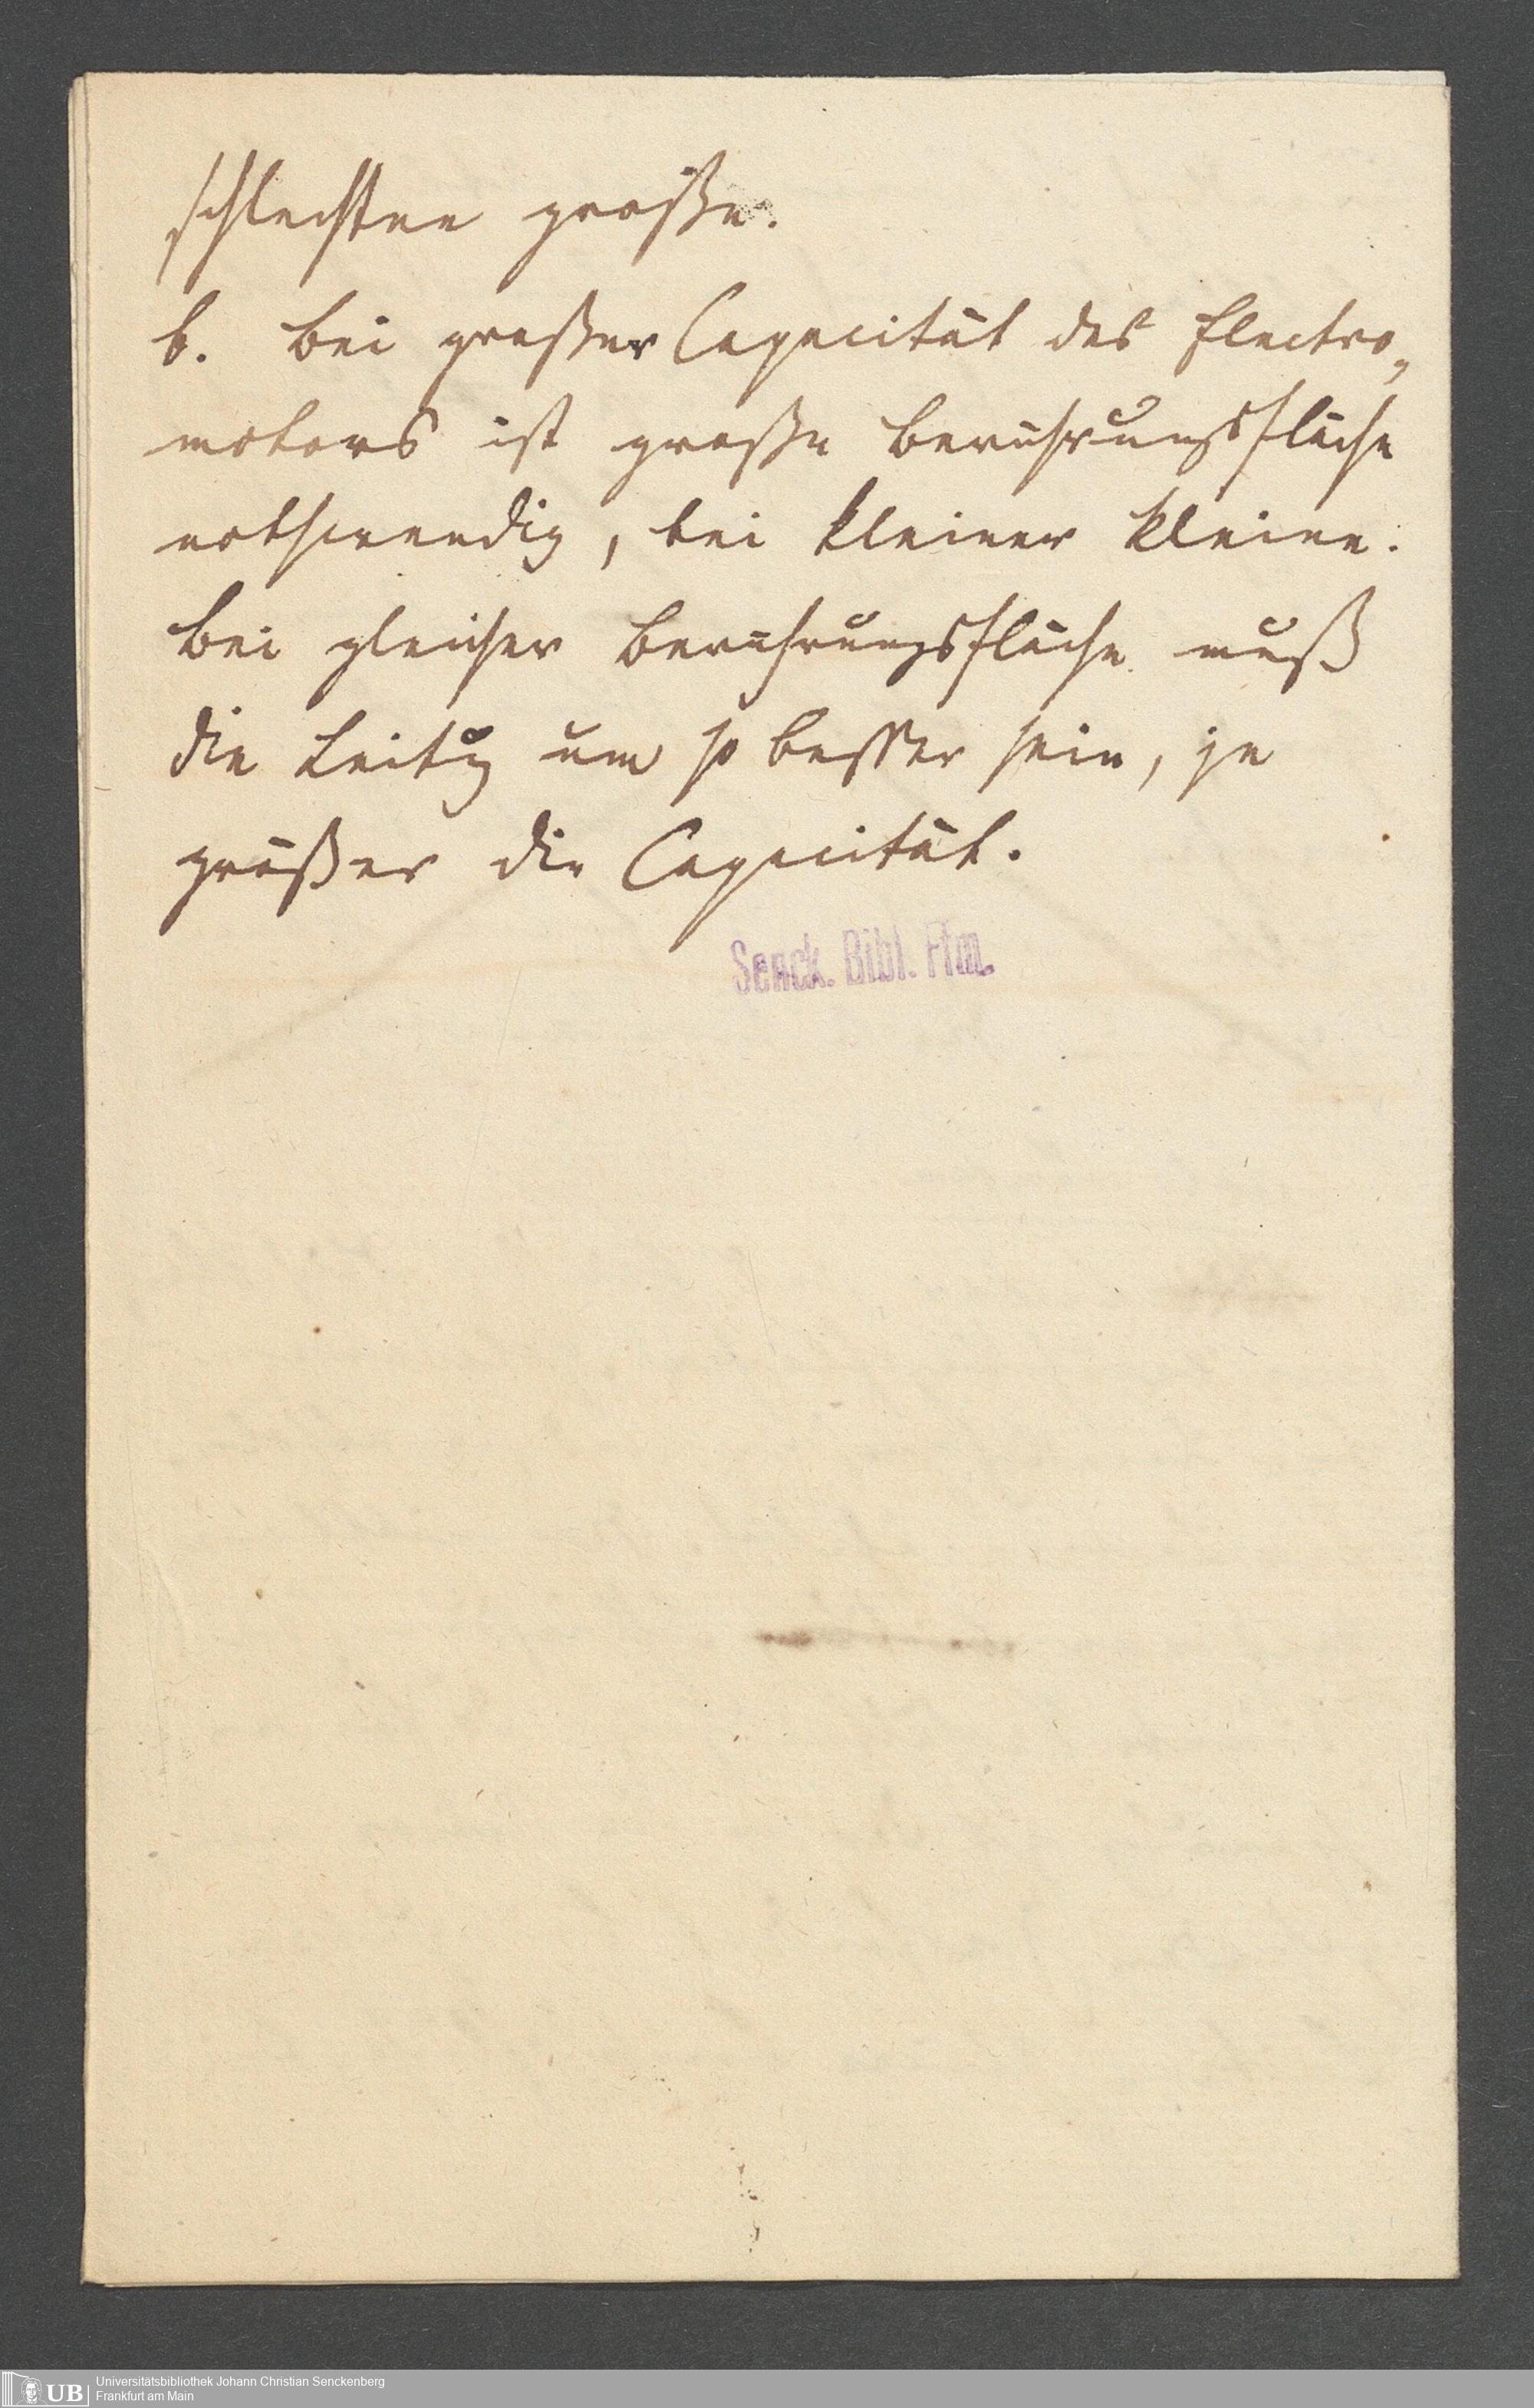 schlechten große.
b. Bei großer Capacität des Electro-
motors ist große Berührungsfläche
nothwendig, bei kleiner kleine.
Bei gleicher Berührungsfläche muß
die Leitg um so besser sein, je
größer die Capacität.
Senck. Bibl. Ffm.
UB
Universitätsbibliothek Johann Christian Senckenberg
Frankfurt am Main